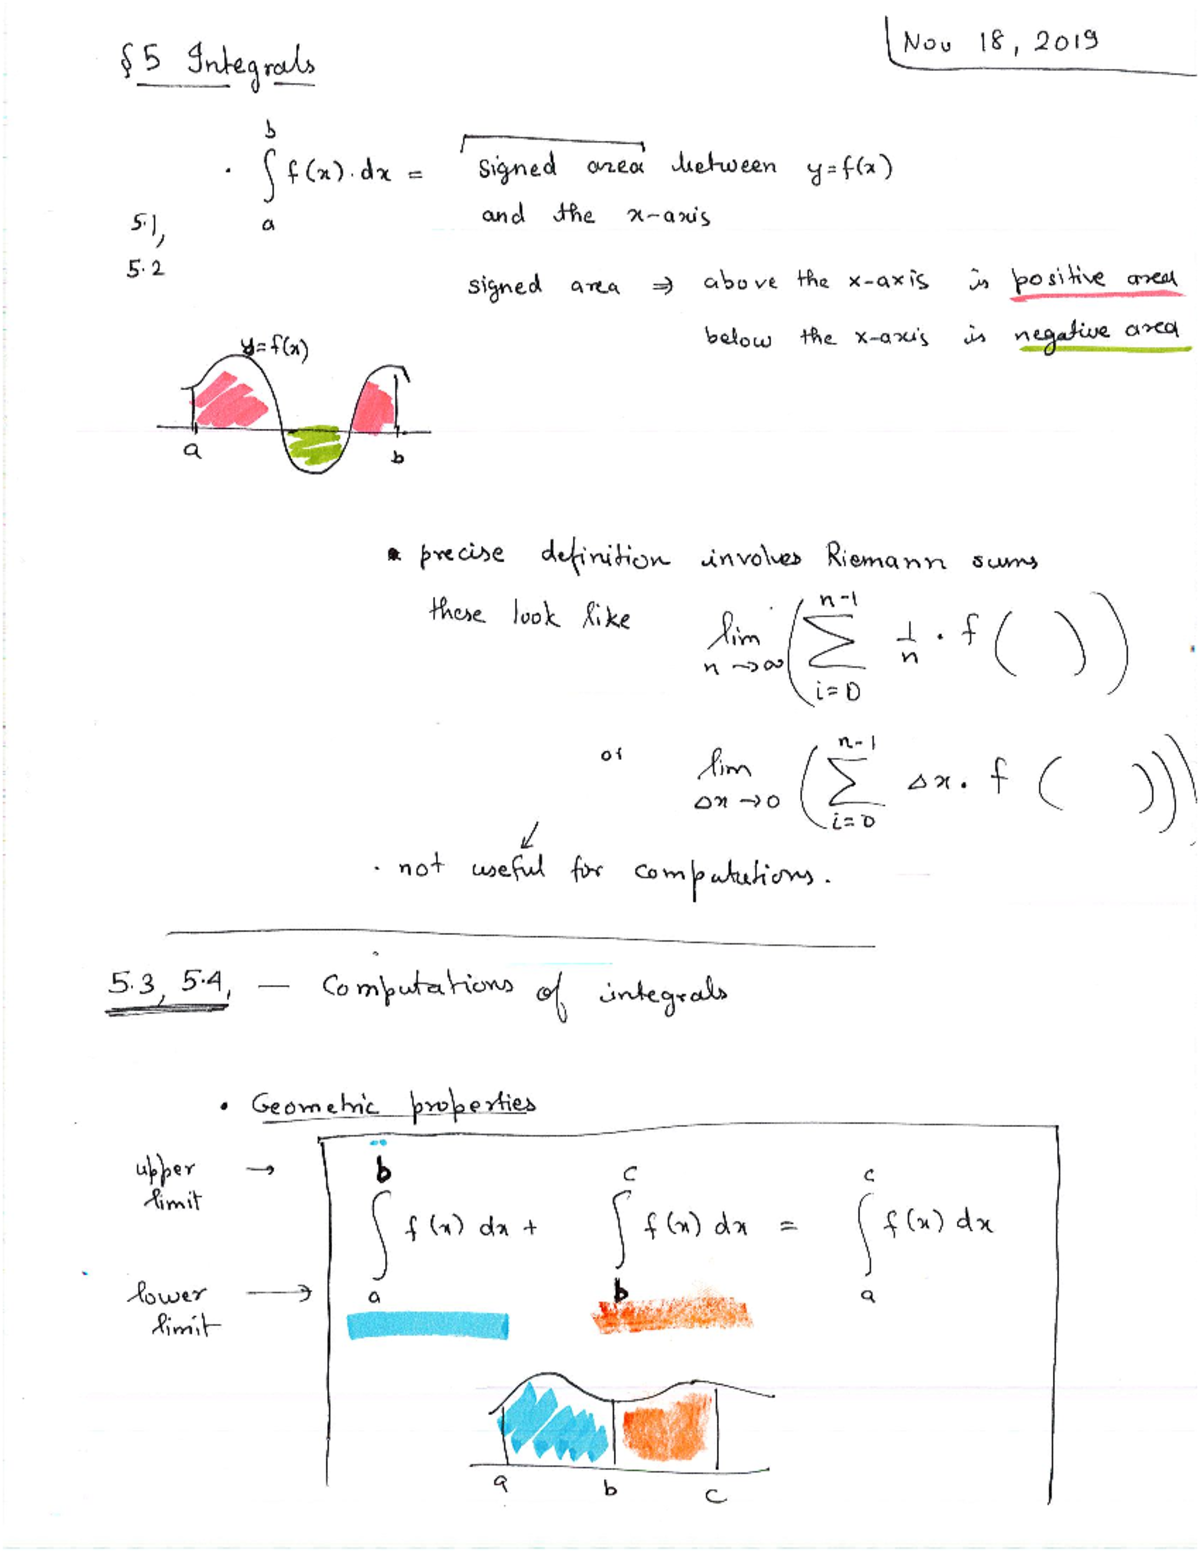 §5 Integrals
Nov 18, 2019
b
· ∫ f(x).dx = signed area between y=f(x)
a
and the x-axis
5.1,
5.2
signed area ⇒ above the x-axis is positive area
below the x-axis is negative area
y=f(x)
a b
• precise definition involves Riemann sums
these look like lim n→∞ ( n-1 ∑ i=0 1/n · f ( ) )
or lim Δx→0 ( n-1 ∑ i=0 Δx. f ( ) )
· not useful for computations.
5.3, 5.4, — Computations of integrals
• Geometric properties
upper → b c c
limit
∫ f(x) dx + ∫ f(x) dx = ∫ f(x) dx
lower → a b a
limit
a b c